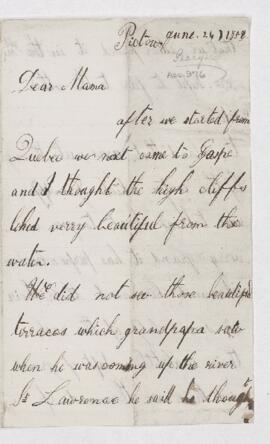 Pictou June. 24) 1868
Dear Mama
after we started from
Quebec we next came to Gaspe
and I thought the high cliffs
loked verry beautiful from the
water.
We did not see those beautiful
terraces which grandpapa saw
when he was coming up the river
St Lawrence he said he thought